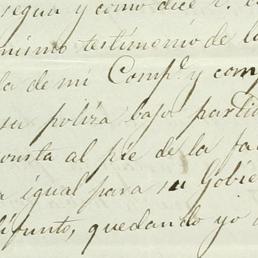 segun y como dice
mismo testimonio de la
la de mi Comp.ª y com
su poliza bajo partid
consta al pie de la fa
a igual para su Gobie
difunto, quedando yo